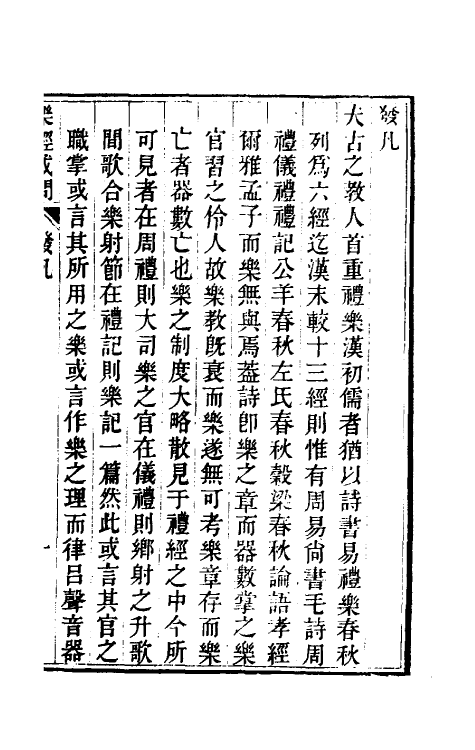 發凡
大古之教人首重禮樂漢初儒者猶以詩書易禮樂春秋
列爲六經迄漢末較十三經則惟有周易尚書毛詩周
禮儀禮禮記公羊春秋左氏春秋穀梁春秋論語孝經
爾雅孟子而樂無與焉葢詩卽樂之章而器數掌之樂
官習之伶人故樂教旣衰而樂遂無可考樂章存而樂
亡者器數亡也樂之制度大略散見于禮經之中今所
可見者在周禮則大司樂之官在儀禮則鄉射之升歌
間歌合樂射節在禮記則樂記一篇然此或言其官之
職掌或言其所用之樂或言作樂之理而律呂聲音器
樂經或問
發凡
一